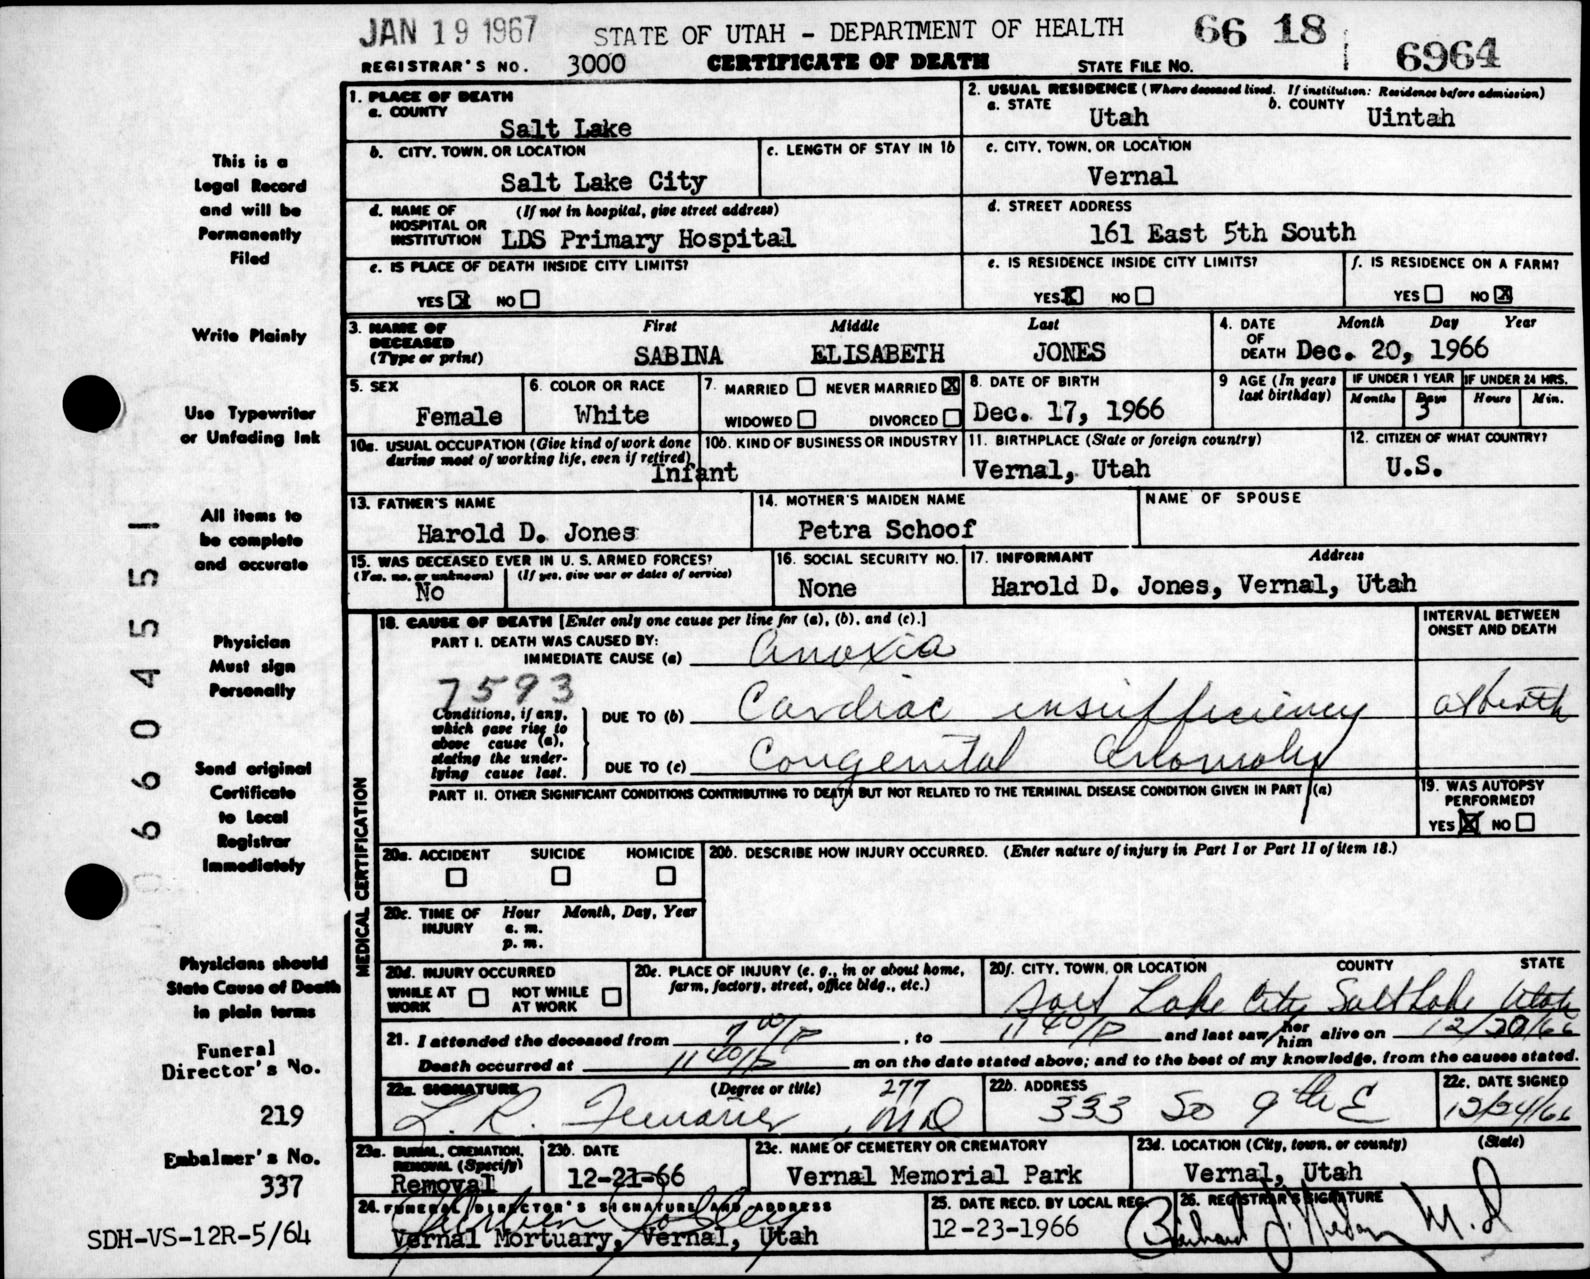 JAN 19 1967 STATE OF UTAH - DEPARTMENT OF HEALTH 66 18 6964
REGISTRAR'S NO. 3000 CERTIFICATE OF DEATH STATE FILE NO.
1. PLACE OF DEATH
a. COUNTY
Salt Lake
2. USUAL RESIDENCE (Where deceased lived. If institution: Residence before admission)
a. STATE Utah b. COUNTY Uintah
b. CITY, TOWN, OR LOCATION
Salt Lake City
c. LENGTH OF STAY IN 1b
c. CITY, TOWN, OR LOCATION
Vernal
d. NAME OF HOSPITAL OR INSTITUTION (If not in hospital, give street address)
LDS Primary Hospital
d. STREET ADDRESS
161 East 5th South
e. IS PLACE OF DEATH INSIDE CITY LIMITS?
YES X NO
e. IS RESIDENCE INSIDE CITY LIMITS?
YES X NO
f. IS RESIDENCE ON A FARM?
YES NO X
3. NAME OF DECEASED (Type or print)
First Middle Last
SABINA ELISABETH JONES
4. DATE OF DEATH Month Day Year
Dec. 20, 1966
5. SEX
Female
6. COLOR OR RACE
White
7. MARRIED NEVER MARRIED X
WIDOWED DIVORCED
8. DATE OF BIRTH
Dec. 17, 1966
9 AGE (In years last birthday)
IF UNDER 1 YEAR
Months Days
3
IF UNDER 24 HRS.
Hours Min.
10a. USUAL OCCUPATION (Give kind of work done during most of working life, even if retired)
Infant
10b. KIND OF BUSINESS OR INDUSTRY
11. BIRTHPLACE (State or foreign country)
Vernal, Utah
12. CITIZEN OF WHAT COUNTRY?
U.S.
13. FATHER'S NAME
Harold D. Jones
14. MOTHER'S MAIDEN NAME
Petra Schoof
NAME OF SPOUSE
15. WAS DECEASED EVER IN U. S. ARMED FORCES?
(Yes, no, or unknown) (If yes, give war or dates of service)
No
16. SOCIAL SECURITY NO.
None
17. INFORMANT Address
Harold D. Jones, Vernal, Utah
MEDICAL CERTIFICATION
18. CAUSE OF DEATH [Enter only one cause per line for (a), (b), and (c).]
INTERVAL BETWEEN ONSET AND DEATH
PART I. DEATH WAS CAUSED BY:
IMMEDIATE CAUSE (a) Anoxia
7593
Conditions, if any, which gave rise to above cause (a), stating the underlying cause last.
DUE TO (b) Cardiac insufficiency at birth
DUE TO (c) Congenital Anomaly
PART II. OTHER SIGNIFICANT CONDITIONS CONTRIBUTING TO DEATH BUT NOT RELATED TO THE TERMINAL DISEASE CONDITION GIVEN IN PART I (a)
19. WAS AUTOPSY PERFORMED?
YES X NO
20a. ACCIDENT SUICIDE HOMICIDE
20b. DESCRIBE HOW INJURY OCCURRED. (Enter nature of injury in Part I or Part II of item 18.)
20c. TIME OF INJURY Hour Month, Day, Year
a. m.
p. m.
20d. INJURY OCCURRED
WHILE AT WORK NOT WHILE AT WORK
20e. PLACE OF INJURY (e. g., in or about home, farm, factory, street, office bldg., etc.)
20f. CITY, TOWN, OR LOCATION COUNTY STATE
Salt Lake City Salt Lake Utah
21. I attended the deceased from 7 00/P, to 11 40/P and last saw her/him alive on 12/20/66
Death occurred at 11 40/P m on the date stated above; and to the best of my knowledge, from the causes stated.
22a. SIGNATURE (Degree or title) 277
L. R. MD
22b. ADDRESS
333 So 9th E
22c. DATE SIGNED
12/24/66
23a. BURIAL, CREMATION, REMOVAL (Specify)
Removal
23b. DATE
12-21-66
23c. NAME OF CEMETERY OR CREMATORY
Vernal Memorial Park
23d. LOCATION (City, town, or county) (State)
Vernal, Utah
24. FUNERAL DIRECTOR'S SIGNATURE AND ADDRESS
Vernal Mortuary, Vernal, Utah
25. DATE RECD. BY LOCAL REG.
12-23-1966
26. REGISTRAR'S SIGNATURE
M.D
This is a
Legal Record
and will be
Permanently
Filed
Write Plainly
Use Typewriter
or Unfading Ink
All items to
be complete
and accurate
Physician
Must sign
Personally
Send original
Certificate
to Local
Registrar
Immediately
Physicians should
State Cause of Death
in plain terms
Funeral
Director's No.
219
Embalmer's No.
337
SDH-VS-12R-5/64